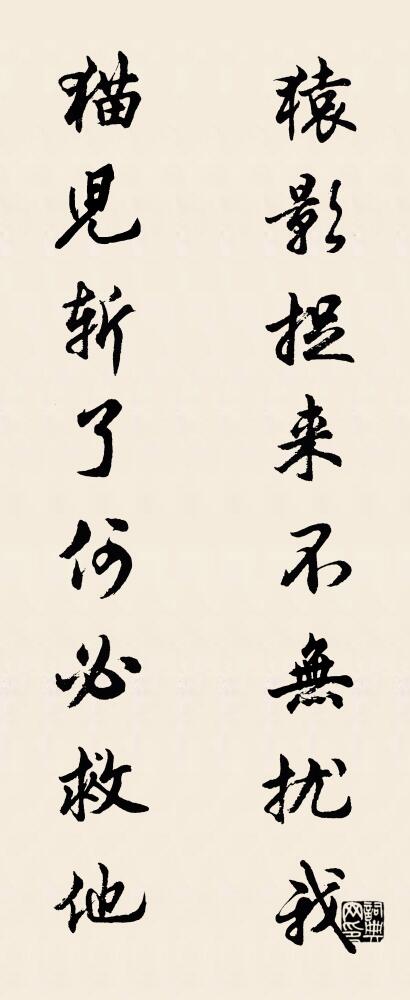 猿影捉来不無扰我
猫児斩了何必救他
詞典网印